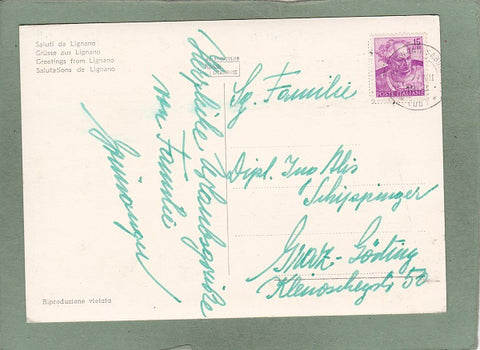 Saluti da Lignano
Grüsse aus Lignano
Greetings from Lignano
Salutations de Lignano
Herzliche Urlaubsgrüße
von Familie
15
POSTE ITALIANE
Sg. Familie
Dipl. Ing Alis
Schippinger
Graz-Gösting
Riproduzione vietata